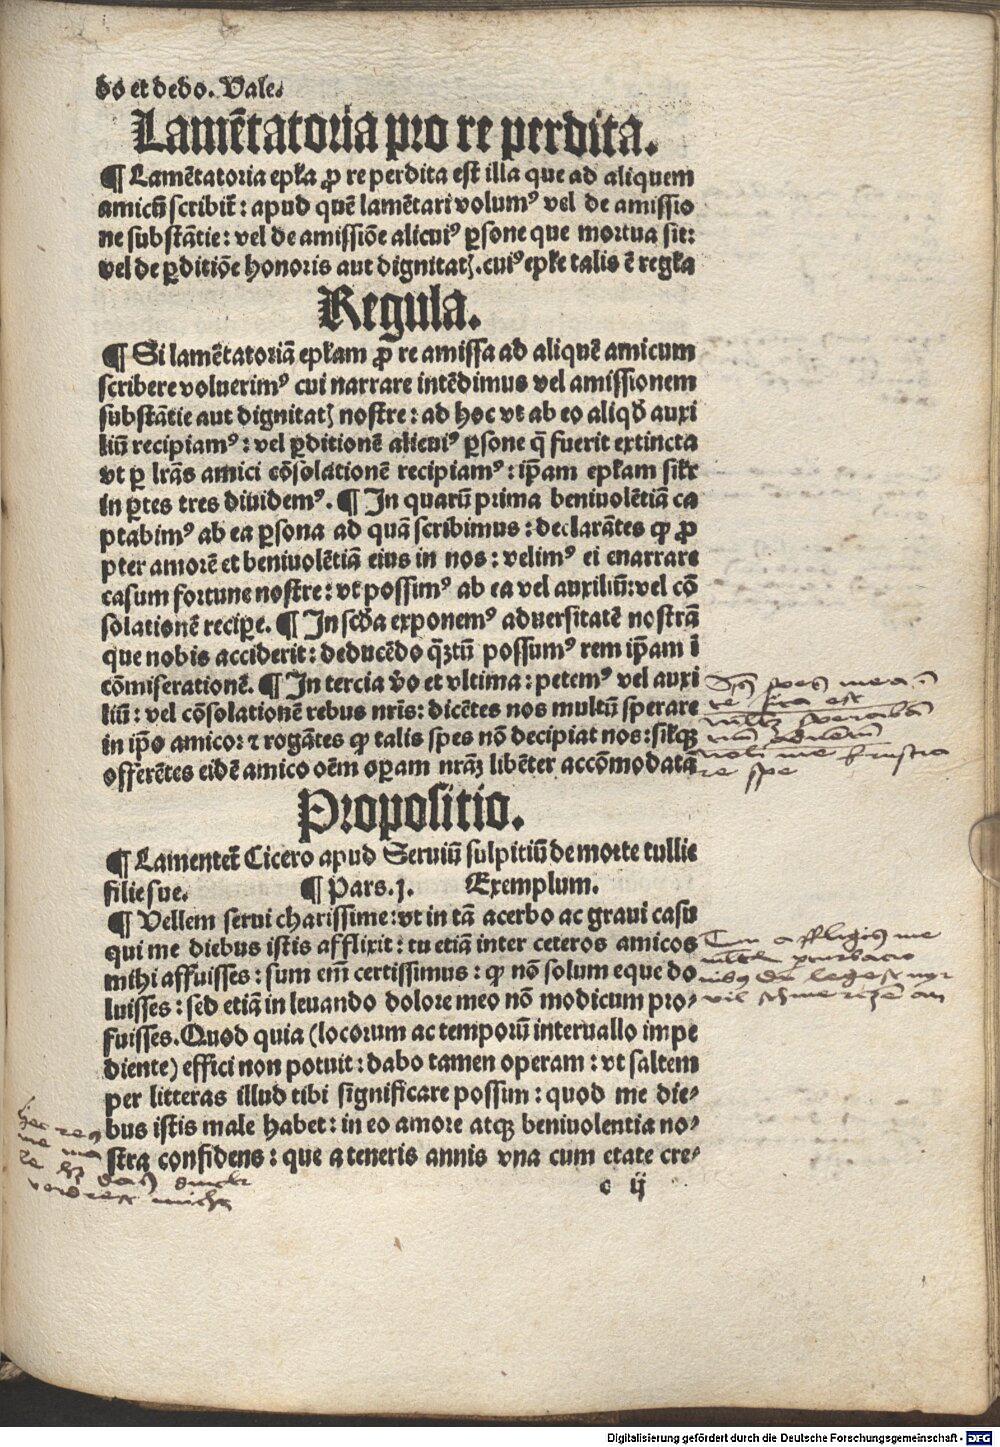 do et dedo. Vale.
Lamētatoria pro re perdita.
¶ Lamētatoria epl̄a ꝓ re perdita est illa que ad aliquem
amicū scribit̄ : apud quē lamētari volumꝰ vel de amissio
ne substātie : vel de amissiōe alicuiꝰ ꝑsone que mortua sit:
vel de ꝑditiōe honoris aut dignitatꝭ. cuiꝰ epl̄e talis ē regl̄a
Regula.
¶ Si lamētatoriā epl̄am ꝓ re amissa ad aliquē amicum
scribere voluerimꝰ cui narrare intēdimus vel amissionem
substātie aut dignitatꝭ nostre : ad hoc vt ab eo aliqd̄ auxi
liū recipiamꝰ : vel ꝑditionē alicuiꝰ ꝑsone q̄ fuerit extincta
vt ꝑ lr̄as amici cōsolationē recipiamꝰ : ip̄am epl̄am sil̄r
in ꝑtes tres diuidemꝰ. ¶ In quarū prima beniuolētiā ca
ptabimꝰ ab ea ꝑsona ad quā scribimus : declarātes ꝙ ꝓ
pter amorē et beniuolētiā eius in nos : velimꝰ ei enarrare
casum fortune nostre : vt possimꝰ ab ea vel auxiliū : vel cō
solationē recipe. ¶ In scd̄a exponemꝰ aduersitatē nostrā
que nobis acciderit : deducēdo q̄ꝫtū possumꝰ rem ip̄am ī
cōmiserationē. ¶ In tercia v̄o et vltima : petemꝰ vel auxi
liū : vel cōsolationē rebus nr̄is : dicētes nos multū sperare
in ip̄o amico : ⁊ rogātes ꝙ talis spes nō decipiat nos : sil̄qꝫ
offerētes eidē amico oēm oꝑam nrāꝫ libēter accōmodatā
Propositio.
¶ Lamentet̄ Cicero apud Seruiū sulpitiū de morte tullie
filie sue. ¶ Pars.j. Exemplum.
¶ Vellem serui charissime : vt in tā acerbo ac graui casu
qui me diebus istis afflixit : tu etiā inter ceteros amicos
mihi affuisses : sum em̄ certissimus : ꝙ nō solum eque do
luisses : sed etiā in leuando dolore meo nō modicum pro⸗
fuisses. Quod quia (locorum ac temporū interuallo impe
diente) effici non potuit : dabo tamen operam : vt saltem
per litteras illud tibi significare possun : quod me die⸗
bus istis male habet : in eo amore atqꝫ beniuolentia no⸗
stra confidens : que a teneris annis vna cum etate cre⸗
c ij
Digitalisierung gefördert durch die Deutsche Forschungsgemeinschaft - DFG